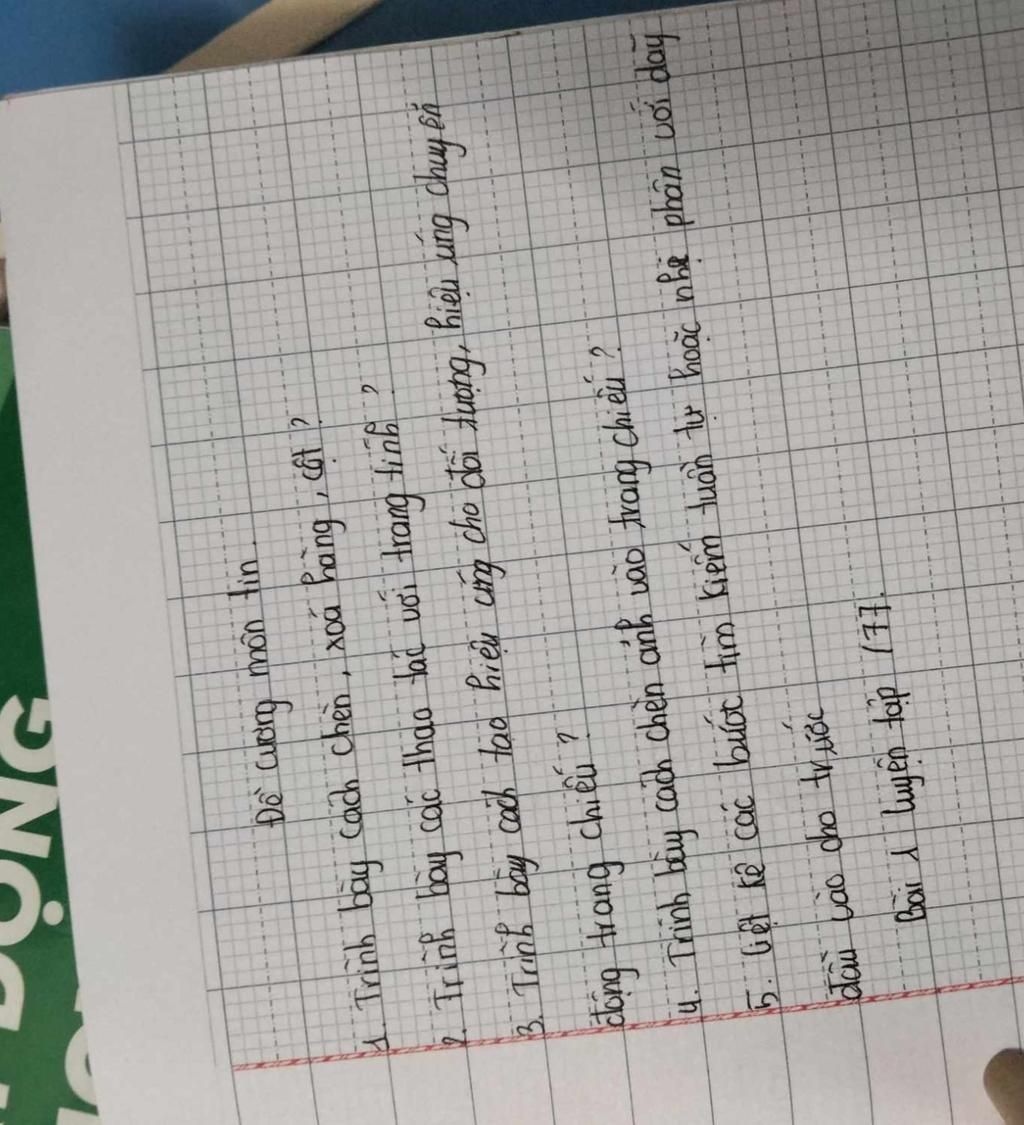 Đề cương môn tin.
1. Trình bày cách chèn, xoá hàng, cột?
2. Trình bày các thao tác với trang tính?
3. Trình bày cách tạo hiệu ứng cho đối tượng, hiệu ứng chuyển
động trang chiếu?
4. Trình bày cách chèn ảnh vào trang chiếu?
5. Liệt kê các bước tìm kiếm tuần tự hoặc nhị phân với dãy
đầu vào cho trước
Bài 1 luyện tập (77.
ĐỘNG